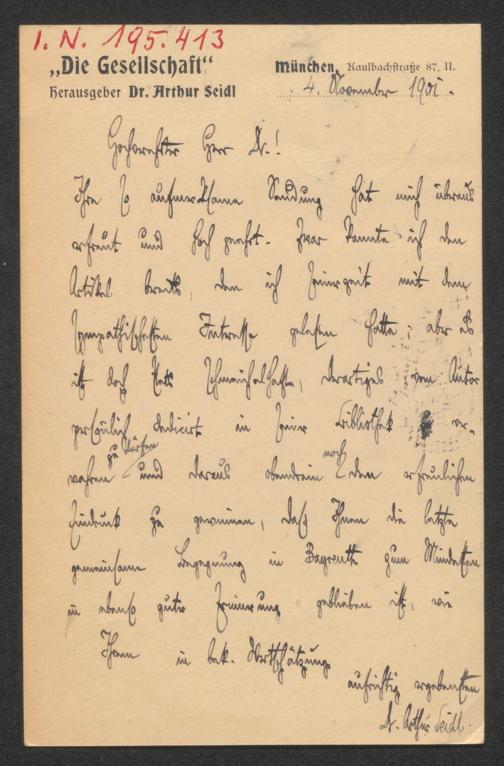 I. N. 195.413
„Die Gesellschaft“
Herausgeber Dr. Arthur Seidl
München, Kaulbachstraße 87, II.
4. November 1901.
Hochverehrter Herr Dr.!
Ihre so aufmerksame Sendung hat mich überaus
erfreut und hoch geehrt. Zwar kannte ich den
Artikel bereits, den ich seinerzeit mit dem
sympathischesten Interesse gelesen hatte; aber es
ist doch stets schmeichelhaft, derartiges vom Autor
persönlich dedicirt in seiner Bibliothek ver-
wahren zu dürfen und daraus obendrein noch den erfreulichen
Eindruck zu gewinnen, daß Ihnen die letzte
gemeinsame Begegnung in Bayreuth zum Mindesten
in ebenso guter Erinnerung geblieben ist, wie
Ihrem in bek. Wertschätzung
aufrichtig ergebensten
Dr. Arthur Seidl.